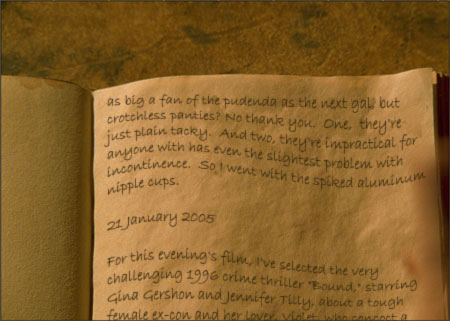 as big a fan of the pudenda as the next gal, but
crotchless panties? No thank you. One, they're
just plain tacky. And two, they're impractical for
anyone with has even the slightest problem with
incontinence. So I went with the spiked aluminum
nipple cups.
21 January 2005
For this evening's film, I've selected the very
challenging 1996 crime thriller "Bound," starring
Gina Gershon and Jennifer Tilly, about a tough
female ex-con and her lover, Violet, who concoct a